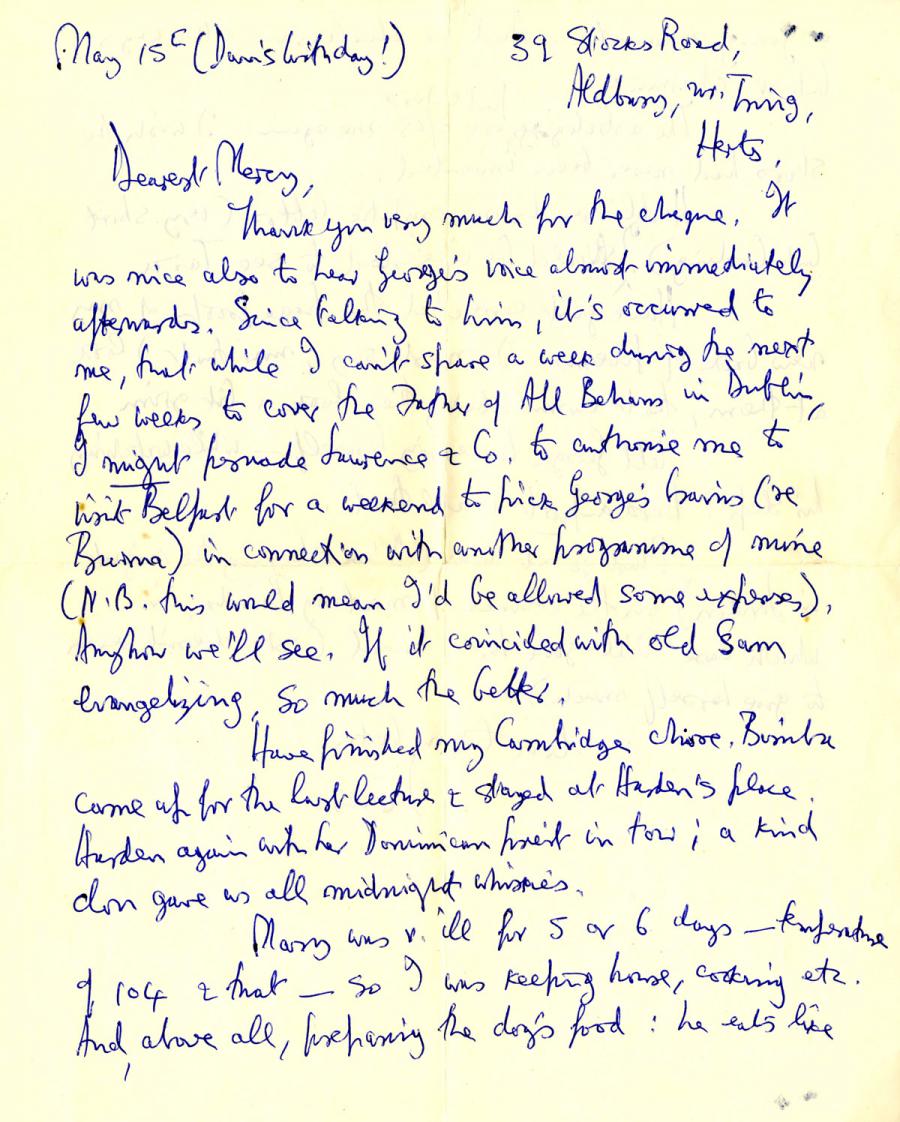 May 15th (Dan's birthday!)
39 Stocks Road,
Aldbury, nr. Tring,
Herts.
Dearest Mercy,
Thank you very much for the cheque. It
was nice also to hear George's voice almost immediately
afterwards. Since talking to him, it's occurred to
me, that while I can't spare a week during the next
few weeks to cover the Father of All Behans in Dublin,
I might persuade Laurence & Co. to authorise me to
visit Belfast for a weekend to pick George's brains (re
Burma) in connection with another programme of mine
(N.B. this would mean I'd be allowed some expenses).
Anyhow we'll see. If it coincided with old Sam
evangelizing, so much the better.
Have finished my Cambridge chore. Bimba
came up for the last lecture & stayed at Harden's place.
Harden again with her Dominican priest in tow; a kind
don gave us all midnight whiskies.
Mary was v. ill for 5 or 6 days — temperature
of 104 & that — so I was keeping house, cooking etc.
And, above all, preparing the dog's food: he eats like